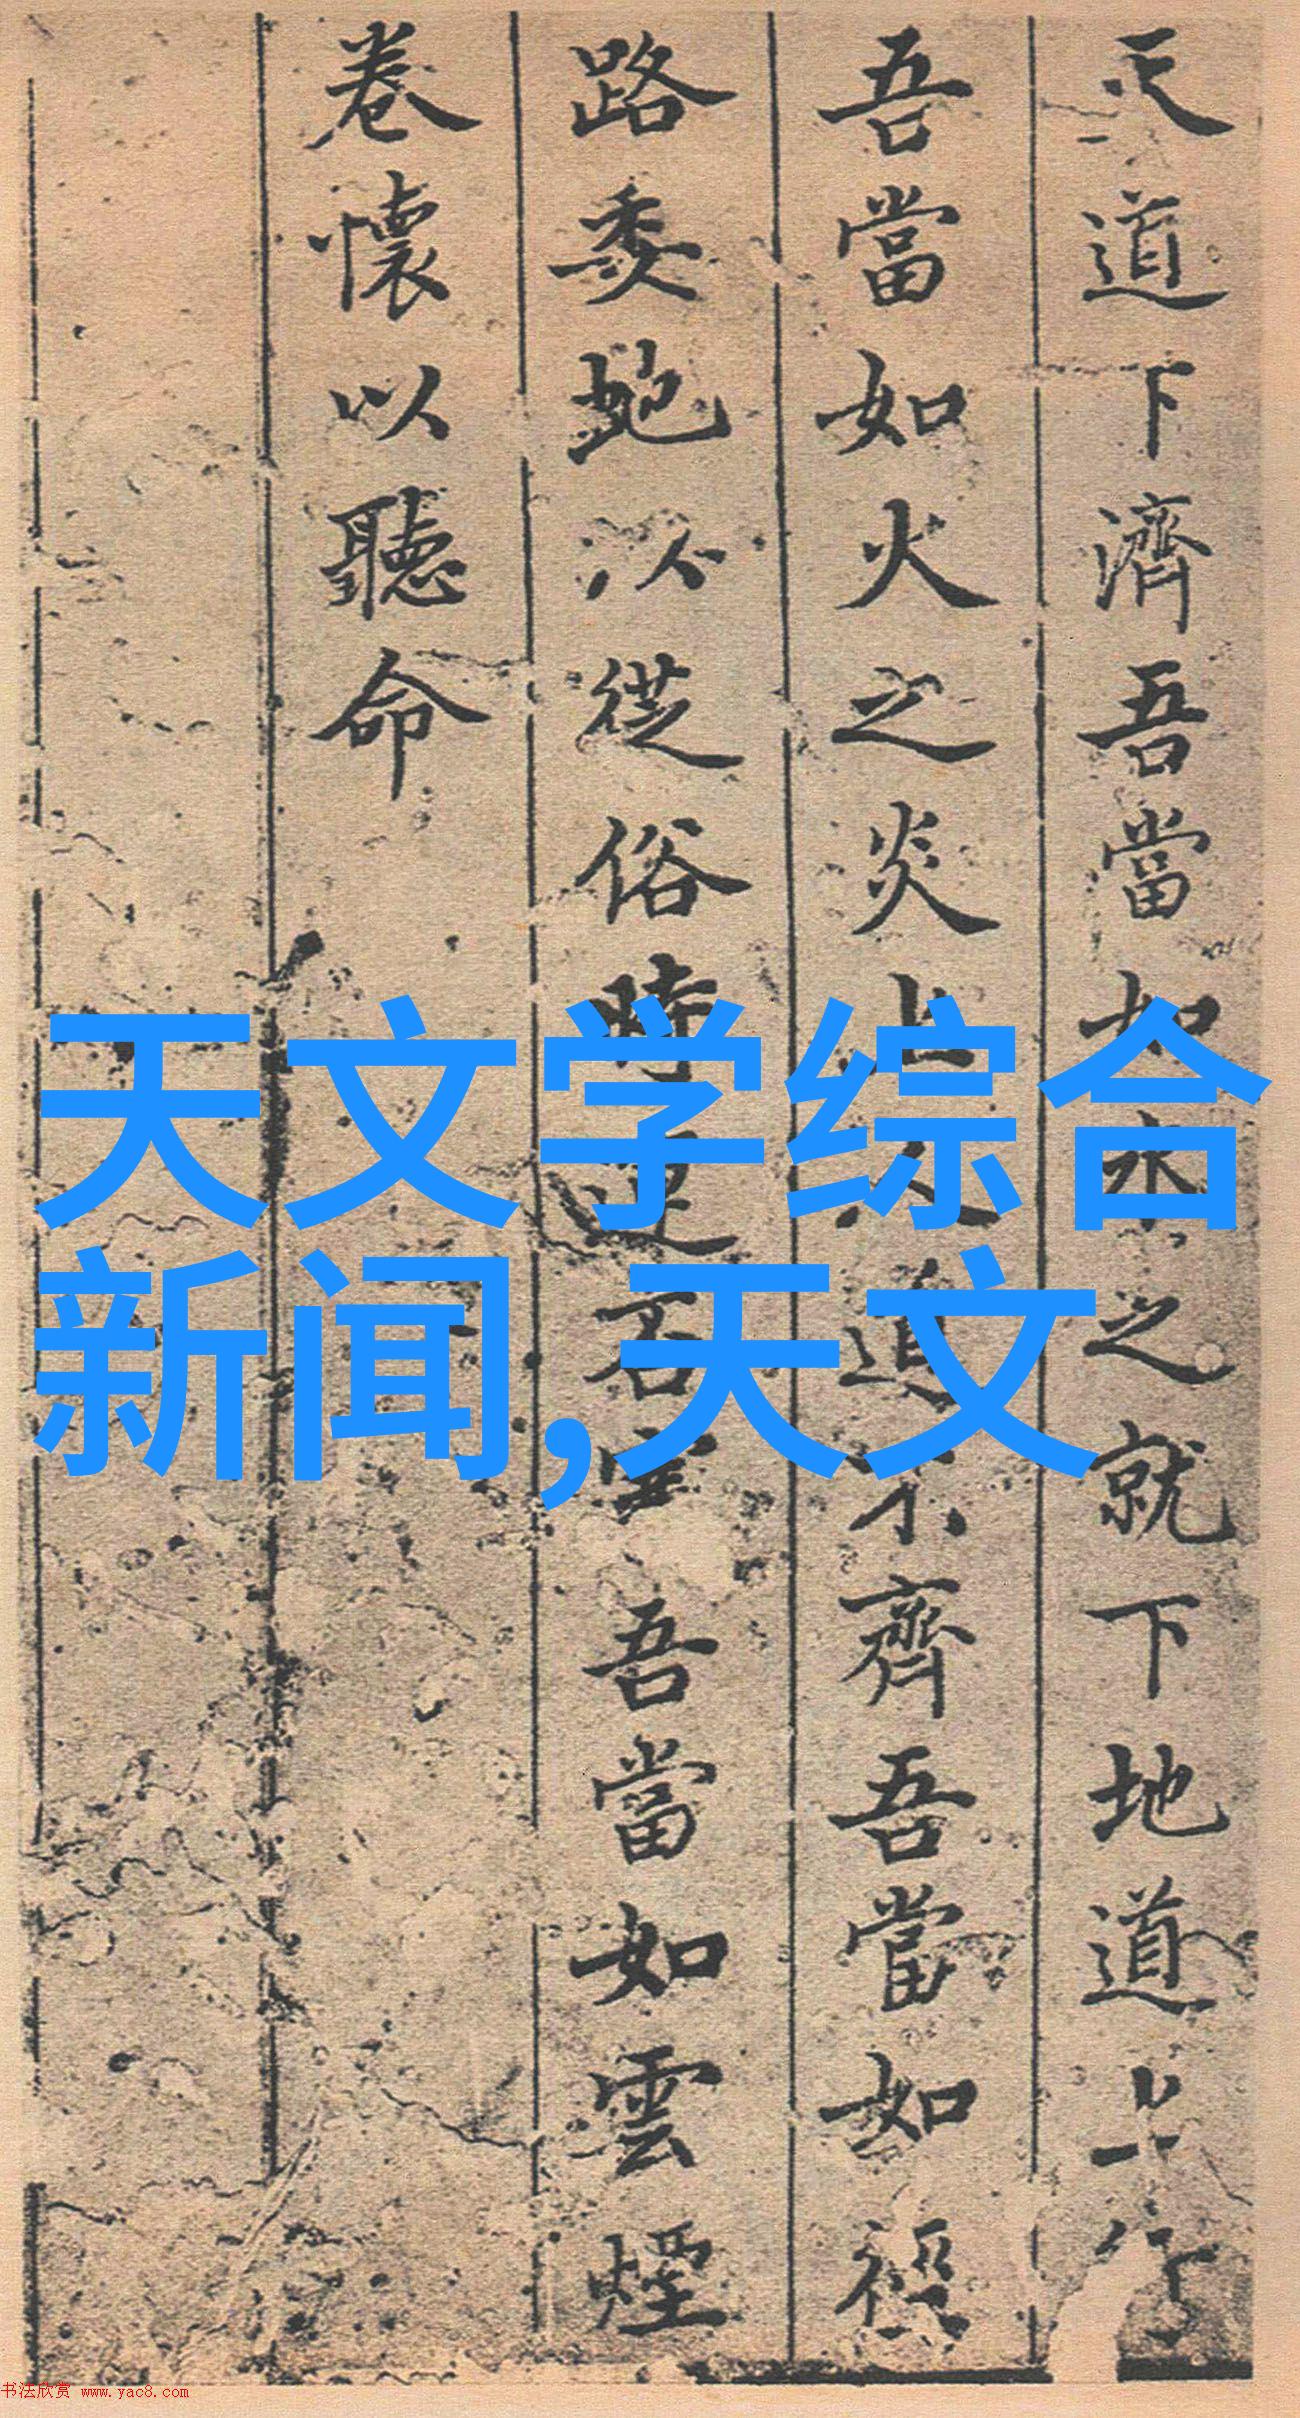 天道下濟吾當如水之就下地道上行
吾當如火之炎上人道不齊吾當如徑
路委虵以從俗時運否塞吾當如雲煙
卷懷以聽命
天文学综合
新闻,天文
书法欣赏 www.yac8.com